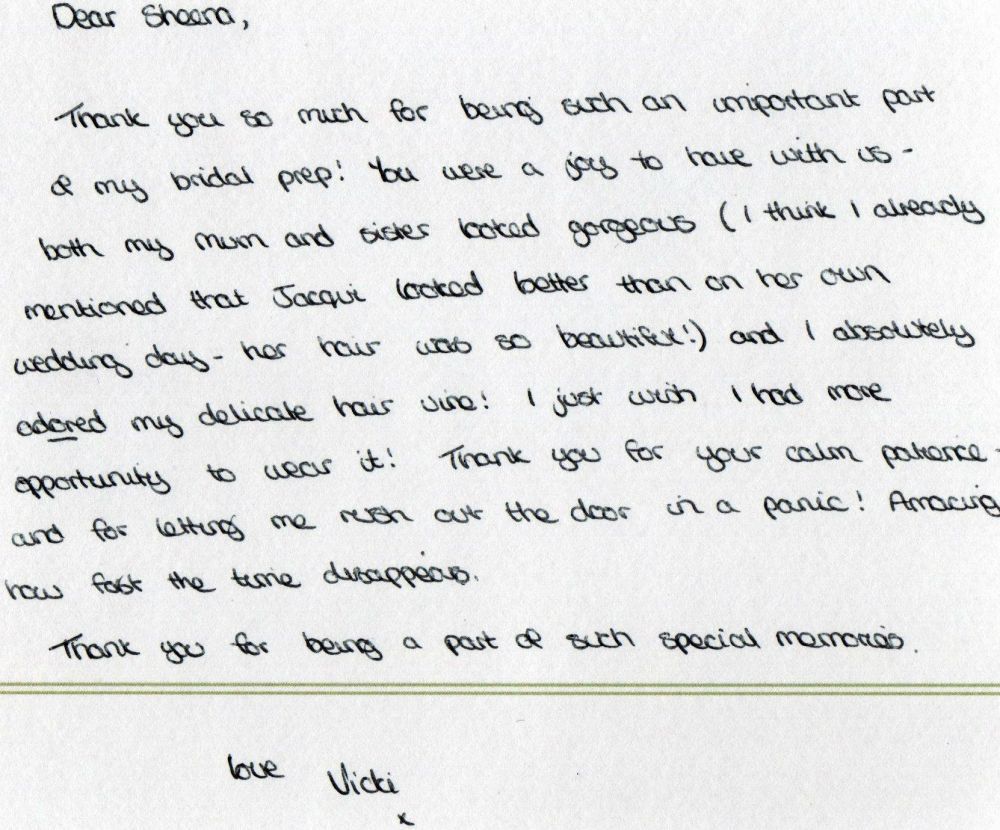 Dear Sheena,
Thank you so much for being such an important part
of my bridal prep! You were a joy to have with us -
both my mum and sister looked gorgeous (I think I already
mentioned that Jacqui looked better than on her own
wedding day - her hair was so beautiful!) and I absolutely
adored my delicate hair vine! I just wish I had more
opportunity to wear it! Thank you for your calm patience -
and for letting me rush out the door in a panic! Amazing
how fast the time disappears.
Thank you for being a part of such special memories.
love Vicki
x